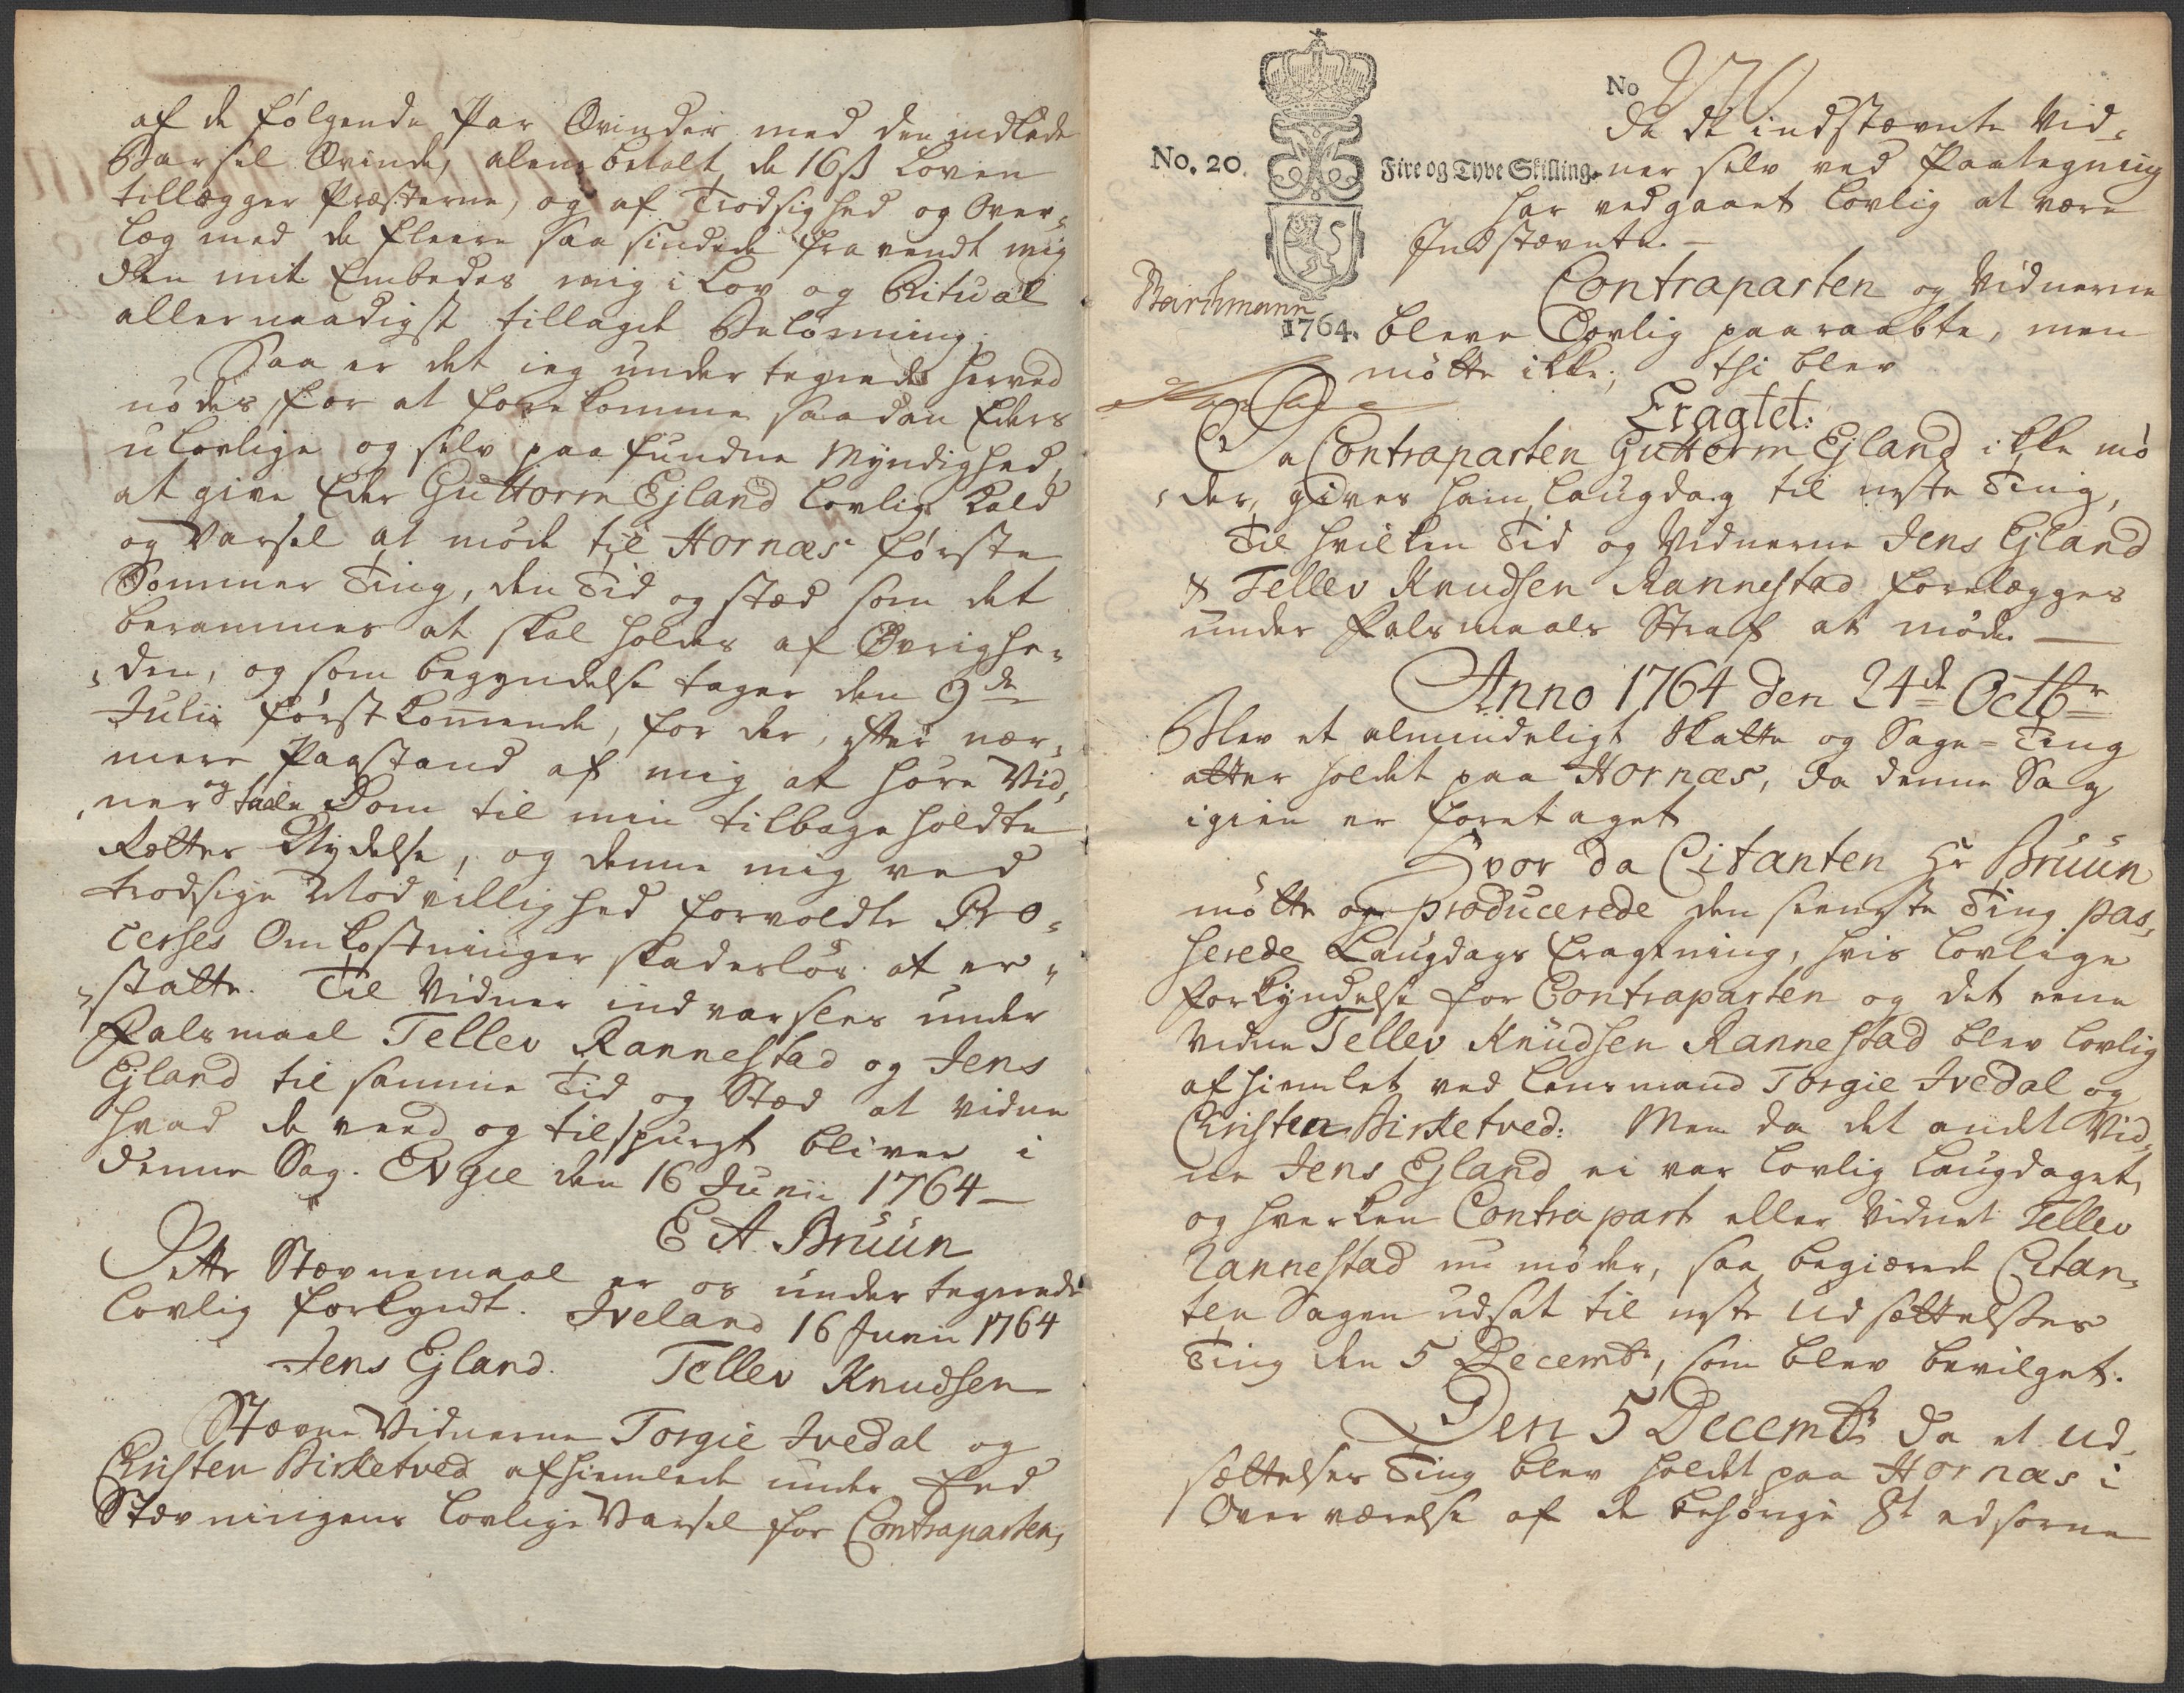 af de følgende Par Qvinder med den indlede
Barsel Qvinde, alene betalt de 16ß Loven
tillægger Præsterne, og af Trodsighed og Over¬
læg med de fleere saa sindede fra vendt mig
den mit Embedes mig i Lov og Ritual
allernaadigst tillagde Belønning;
Saa er det ieg under tegnede herved
nødes for at forekomme saadan Eders
ulovlige og selv paafundne Myndighed,
at give Eder Guttorm Ejland lovlig Kald
og Varsel at møde til Hornæs første
Sommer Ting, den Tid og stæd som det
berammes at skal holdes af Øvrighe¬
den, og som begyndelse tager den 9de
Julii førstkommende, for der, efter nær¬
mere Paastand af mig at høre Vid¬
ner og taale Dom til min tilbage holdte
Rettes Nydelse, og denne mig ved
trodsige Modvillighed forvoldte Pro¬
cesses Omkostninger skadesløs at er¬
statte. Til Vidner indvarsles under
Falsmaal Tellev Rannestad og Jens
Ejland til samme Tid og Stæd at vidne
hvad de veed og tilspurgt bliver i
denne Sag. Evgie den 16 Junii 1764
E A. Bruun
Dette Stævnemaal er os under tegnede
lovlig forkyndt. Iveland 16 Junii 1764
Jens Ejland. Tellev Knudsen
Stævne Vidnerne Torgie Ivedal og
Christen Birketved afhiemlede under Eed
Stævningens lovlige Varsel for Contraparten,
No
No. 20.
Fire og Tyve Skilling.
1764.
da de indstævnte Vid¬
ner selv ved Paategning
har vedgaaet lovlig at være
Indstævnte.
Contraparten og Vidnerne
bleve Lovlig paaraabte, men
møtte ikke; thi blev
Eragtet:
Da Contraparten Guttorm Ejland ikke mø
der, gives ham Laugdag til neste Ting,
Til hvilken Tid og Vidnerne Jens Ejland
& Tellev Knudsen Rannestad forelægges
under Falsmaals Straf at møde.
Anno 1764 den 24de Octbr
Blev et almindeligt Skatte og Sage-Ting
atter holdet paa Hornæs, da denne Sag
igien er foretaget
Hvor da Citanten Hr Bruun
møtte og producerede den seeneste Ting pas¬
serede Laugdags Eragtning, hvis lovlige
forkyndelse for Contraparten og det eene
Vidne Tellev Knudsen Rannestad blev lovlig
afhiemlet ved Lensmand Torgie Ivedal og
Christen Birketved: Men da det andet Vid¬
ne Jens Ejland ei var lovlig Laugdaget,
og hverken Contrapart eller Vidnet Tellev
Rannestad nu møder, saa begiærede Citan¬
ten Sagen udsat til neste Udsættelses
Ting den 5 Decembr, som blev bevilget.
Den 5 Decembr da et Ud¬
sættelses Ting blev holdet paa Hornæs i
Overværelse af de behørige 8t edsorne